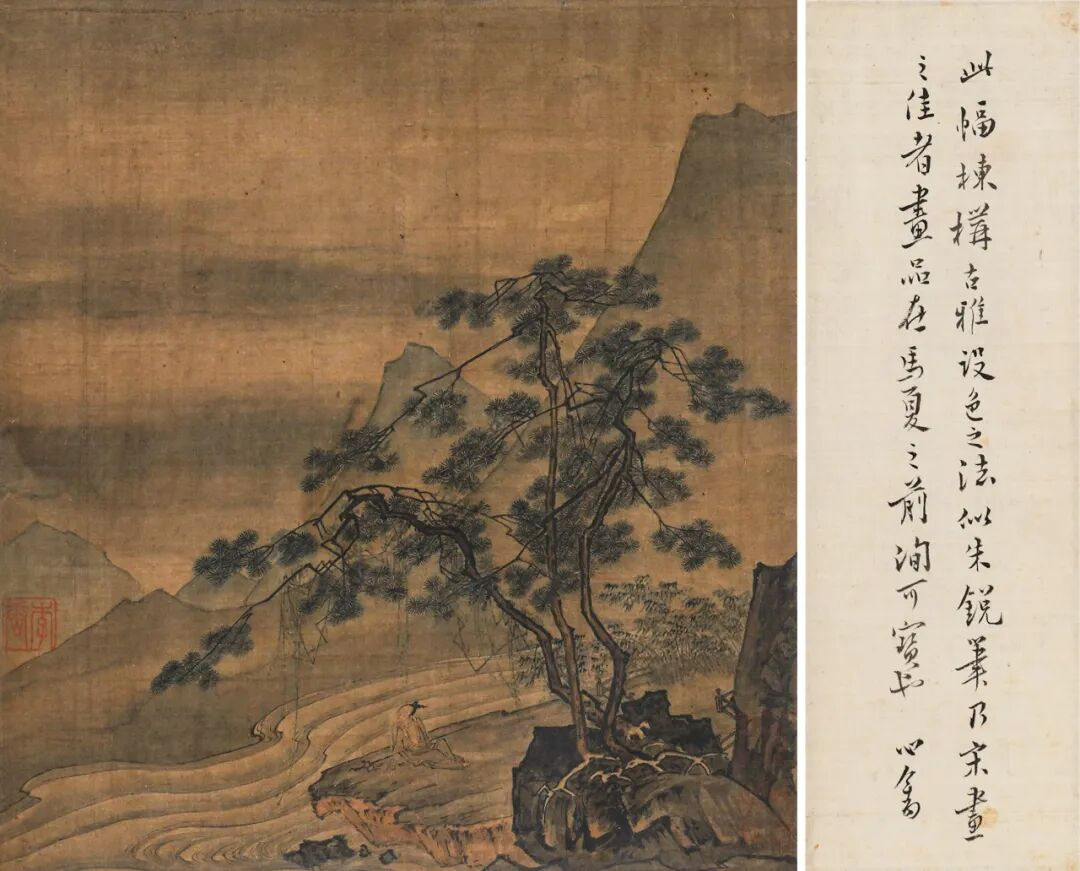 此幅棟構古雅設色之法似朱銳筆乃宋畫
之佳者畫品在馬夏之前洵可寶也 心畬